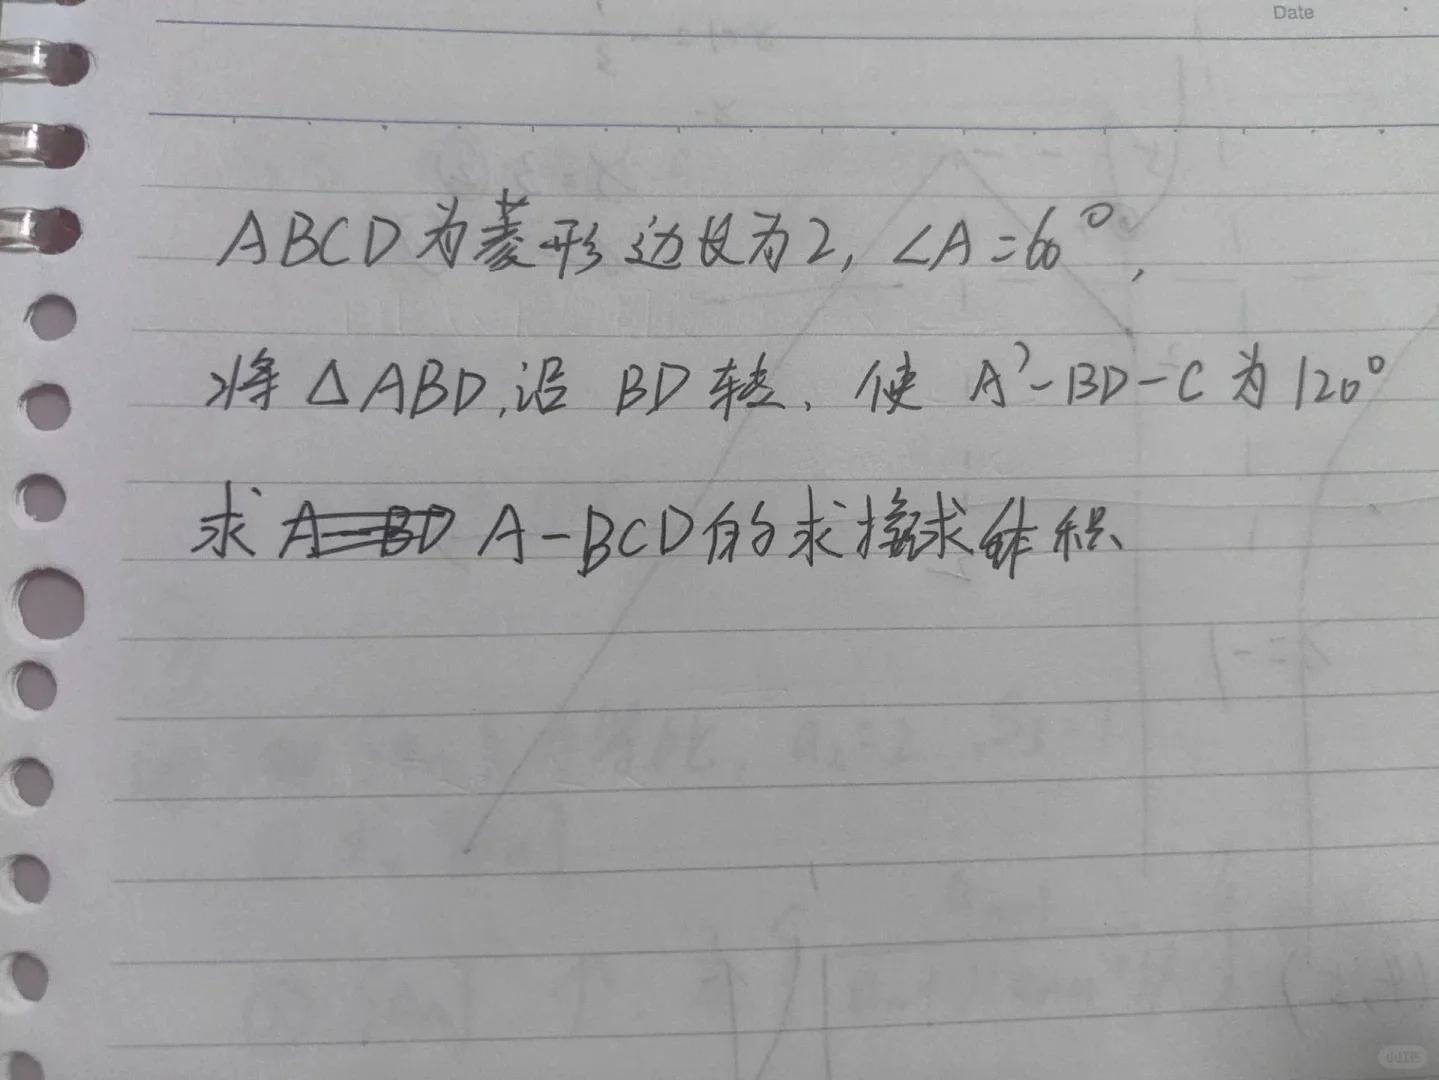 Date
ABCD为菱形边长为2,∠A=60°,
将△ABD,沿 BD转、使 A'-BD-C为120°
求 A-BD A-BCD的求接球体积、
小红书